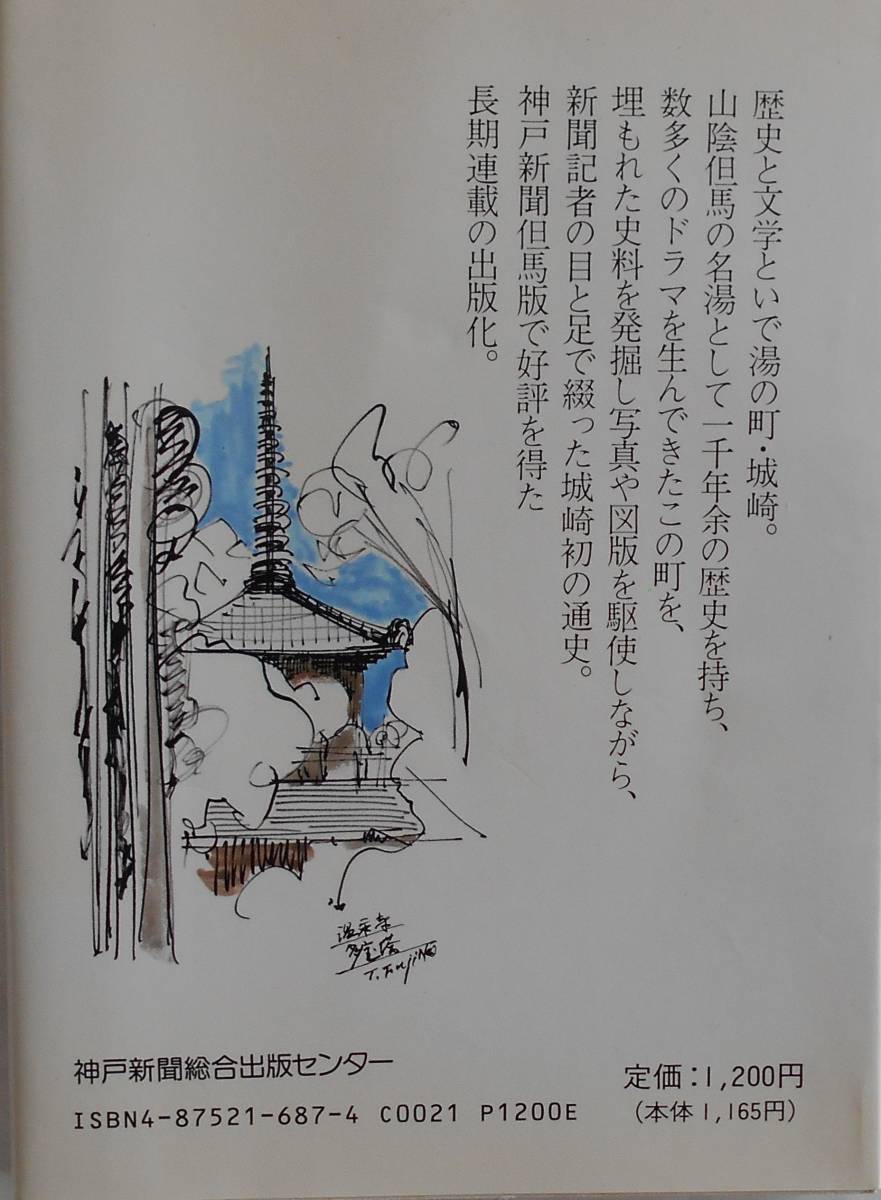 歴史と文学といで湯の町・城崎。
山陰但馬の名湯として一千年余の歴史を持ち、
数多くのドラマを生んできたこの町を、
埋もれた史料を発掘し写真や図版を駆使しながら、
新聞記者の目と足で綴った城崎初の通史。
神戸新聞但馬版で好評を得た
長期連載の出版化。
温泉寺
多宝塔
神戸新聞総合出版センター
定価：1,200円
ISBN4-87521-687-4 C0021 P1200E
（本体1,165円）